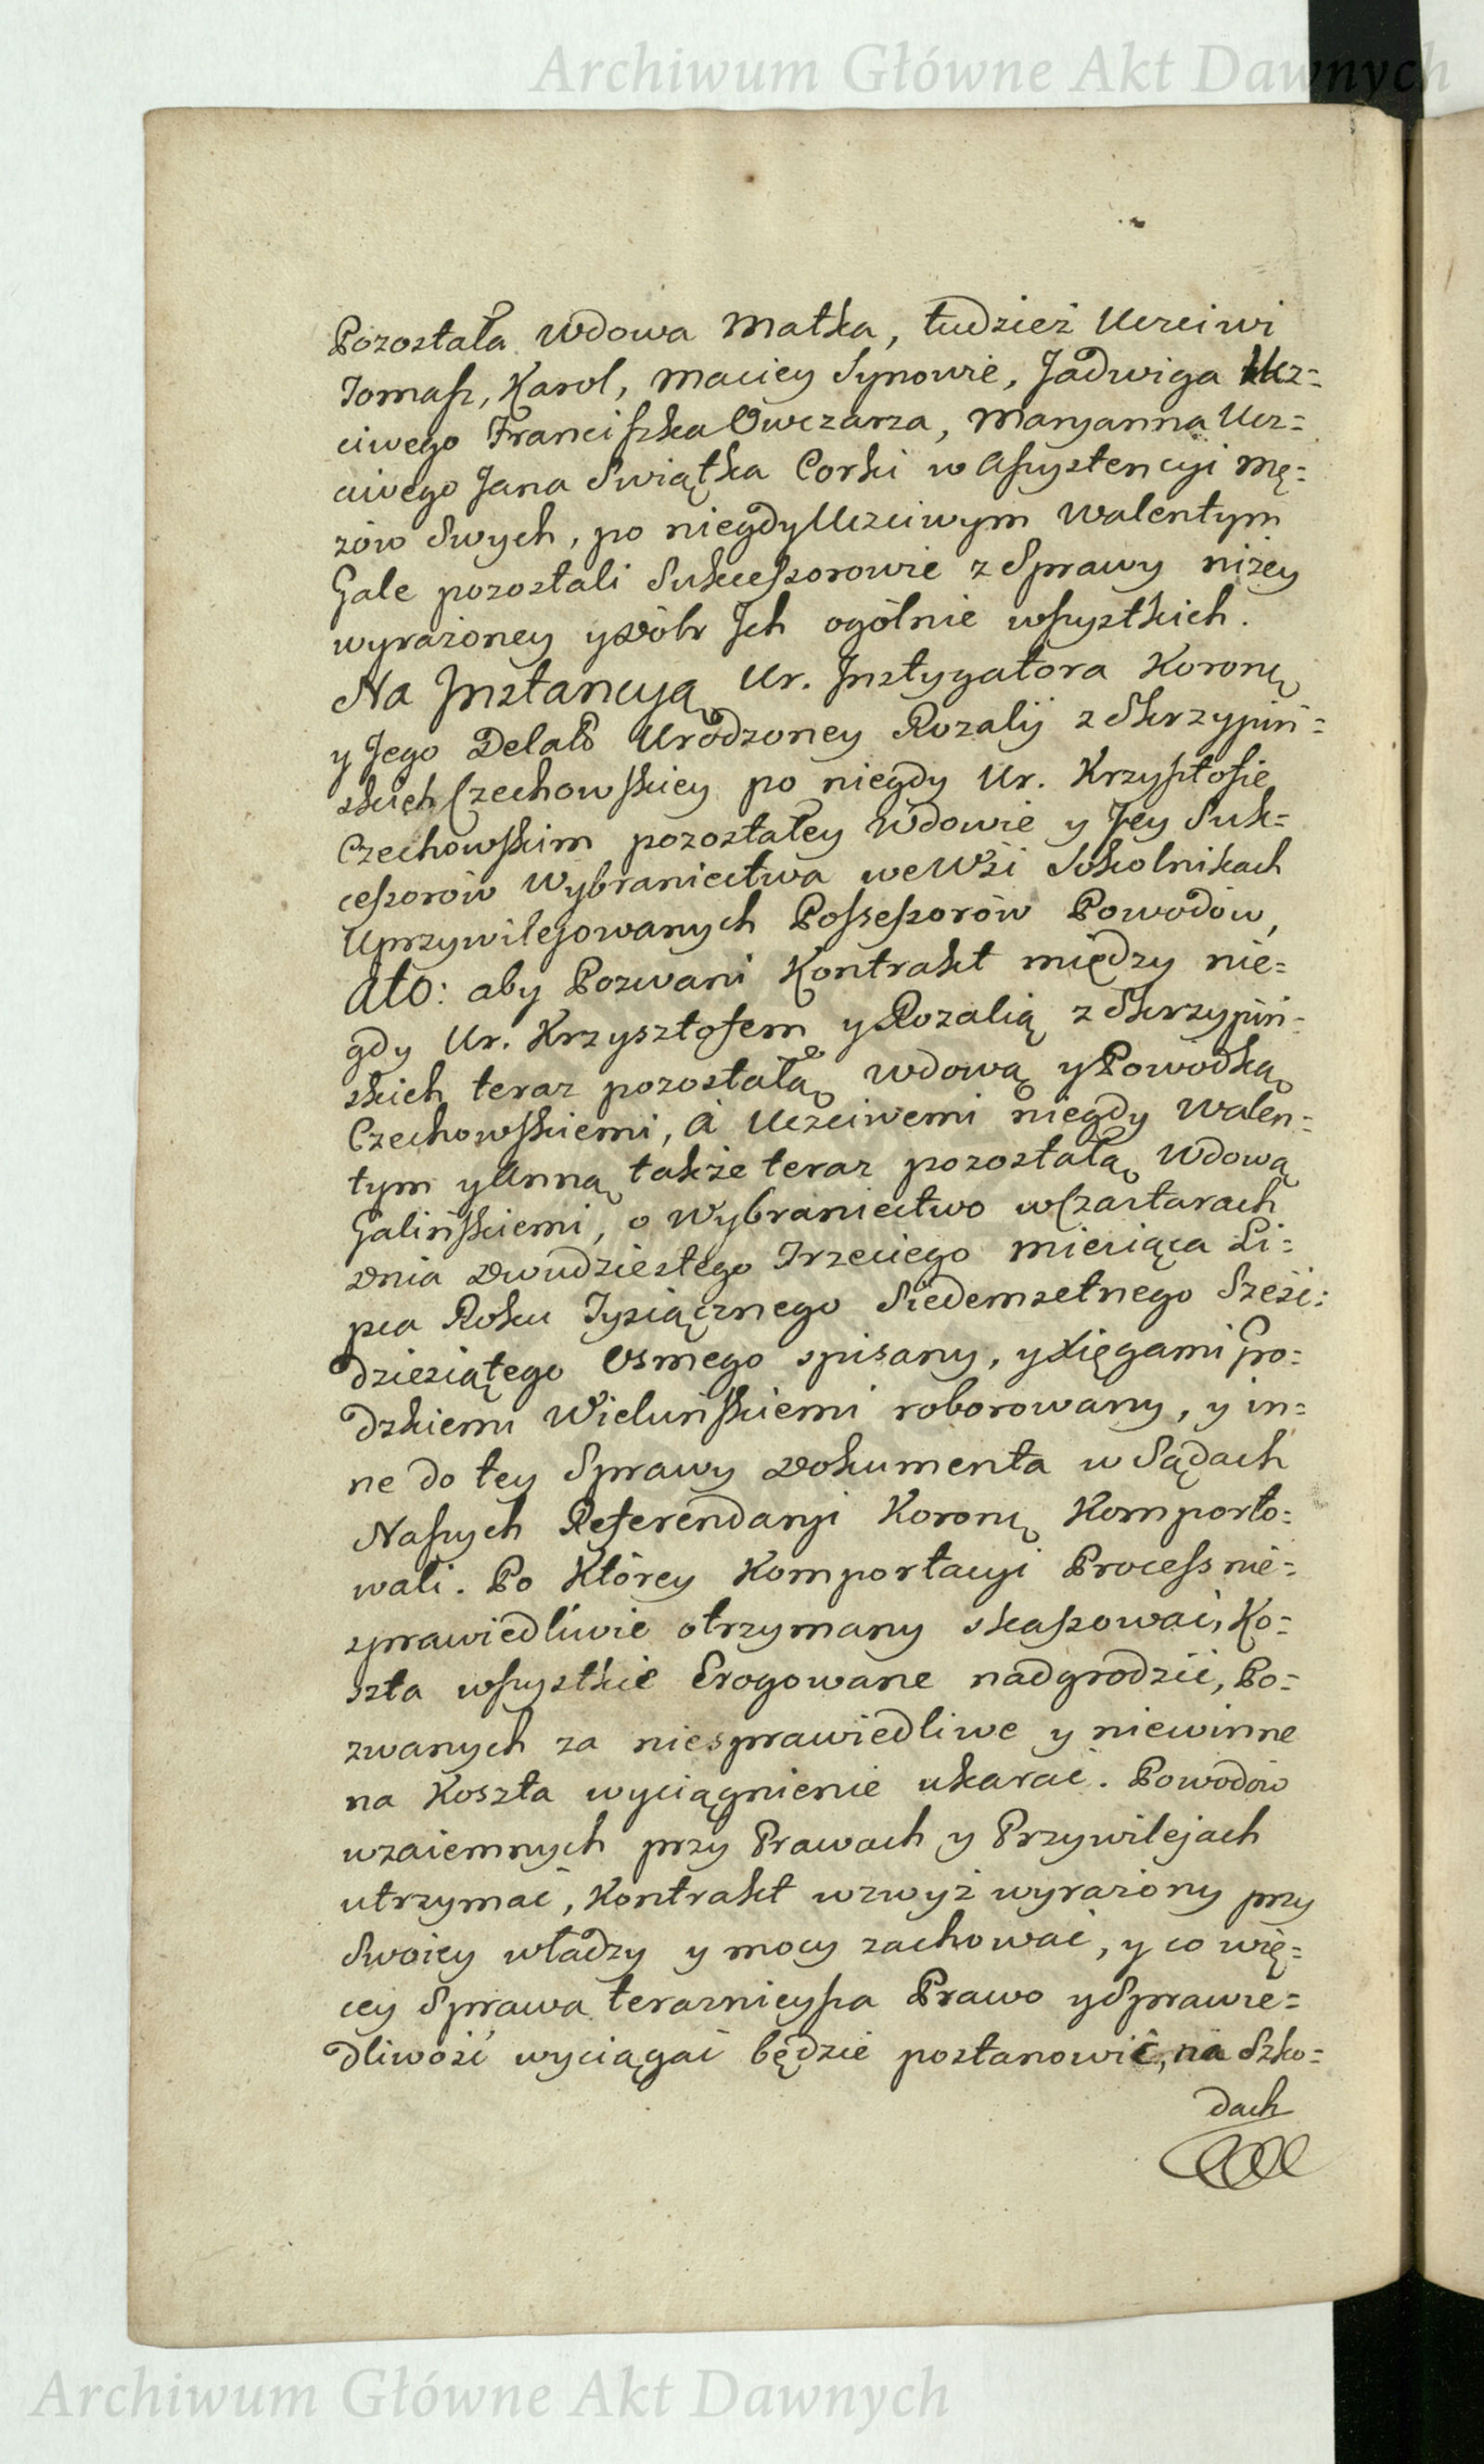 Archiwum Główne Akt Dawnych
Pozostała Wdowa Matka, tudzież Uczciwi
Tomasz, Karol, Maciey Synowie, Jadwiga Ucz=
ciwego Franciszka Owczarza, Maryanna Ucz=
ciwego Jana Swiątka Corki w Assystencyi Mę=
żów Swych, po niegdy Uczciwym Walentym
Gale pozostali Sukcessorowie z Sprawy niżey
wyrażoney y Dóbr Jch ogólnie wszystkich.
Na Jnstancyą Ur. Jnstygatora Koronn
y Jego Delato Urodzoney Rozalij z Skrzypiń=
skich Czechowskiey po niegdy Ur. Krzysztofie
Czechowskim pozostałey Wdowie y Jey Suk=
cessorów Wybraniectwa we Wśi Sokolnikach
Uprzywilejowanych Possessorów Powodów,
Ato: aby Pozwani Kontrakt między nie=
gdy Ur. Krzysztofem y Rozalią z Skrzypiń=
skich teraz pozostałą Wdową y Powodką
Czechowskiemi, à Uczciwemi niegdy Walen=
tym y Anną także teraz pozostałą Wdową
Galińskiemi, o Wybraniectwo w Czastarach
Dnia Dwudziestego Trzeciego Miesiąca Li=
pca Roku Tysiącznego Siedemsetnego Sześć=
dziesiątego Osmego spisany, y Xięgami Gro=
dzkiemi Wieluńskiemi roborowany, y in=
ne do tey Sprawy Dokumenta w Sądach
Naszych Referendaryi Koronn Komporto=
wali. Po Którey Komportacyi Process nie=
sprawiedliwie otrzymany skassować, Ko=
szta wszystkie Erogowane nadgrodzić, Po=
zwanych za niesprawiedliwe y niewinne
na Koszta wyciągnienie ukarać. Powodów
wzaiemnych przy Prawach y Przywilejach
utrzymać, Kontrakt wzwyż wyrażony przy
Swoiey władzy y mocy zachować, y co wię=
cey Sprawa teraznieysza Prawo y Sprawie=
dliwość wyciągać będzie postanowić, na Szko=
dach
Archiwum Główne Akt Dawnych